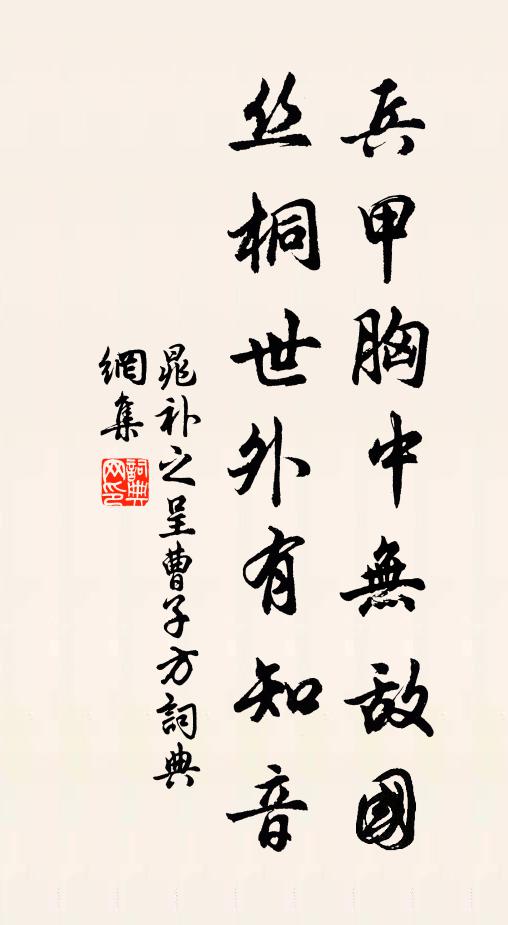 兵甲胸中無敌國
丝桐世外有知音
晁补之呈曹子方詞典
網集
詞典
网印